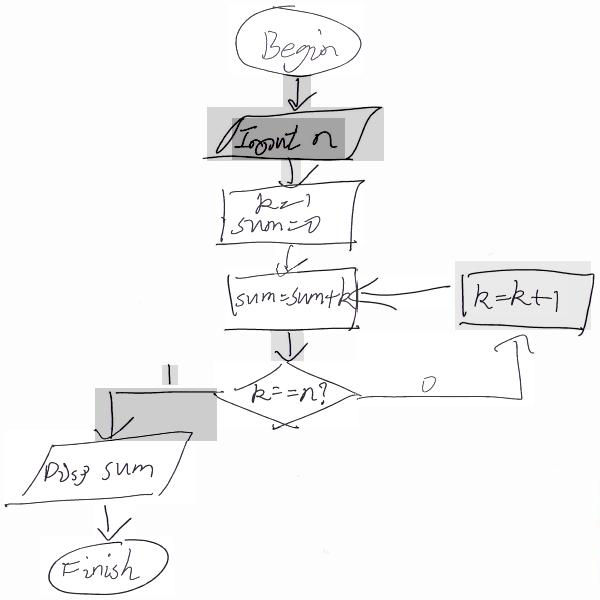 Begin
Input n
k=1
sum=0
sum=sum+k
k=k+1
k==n?
1
0
sum
Finish